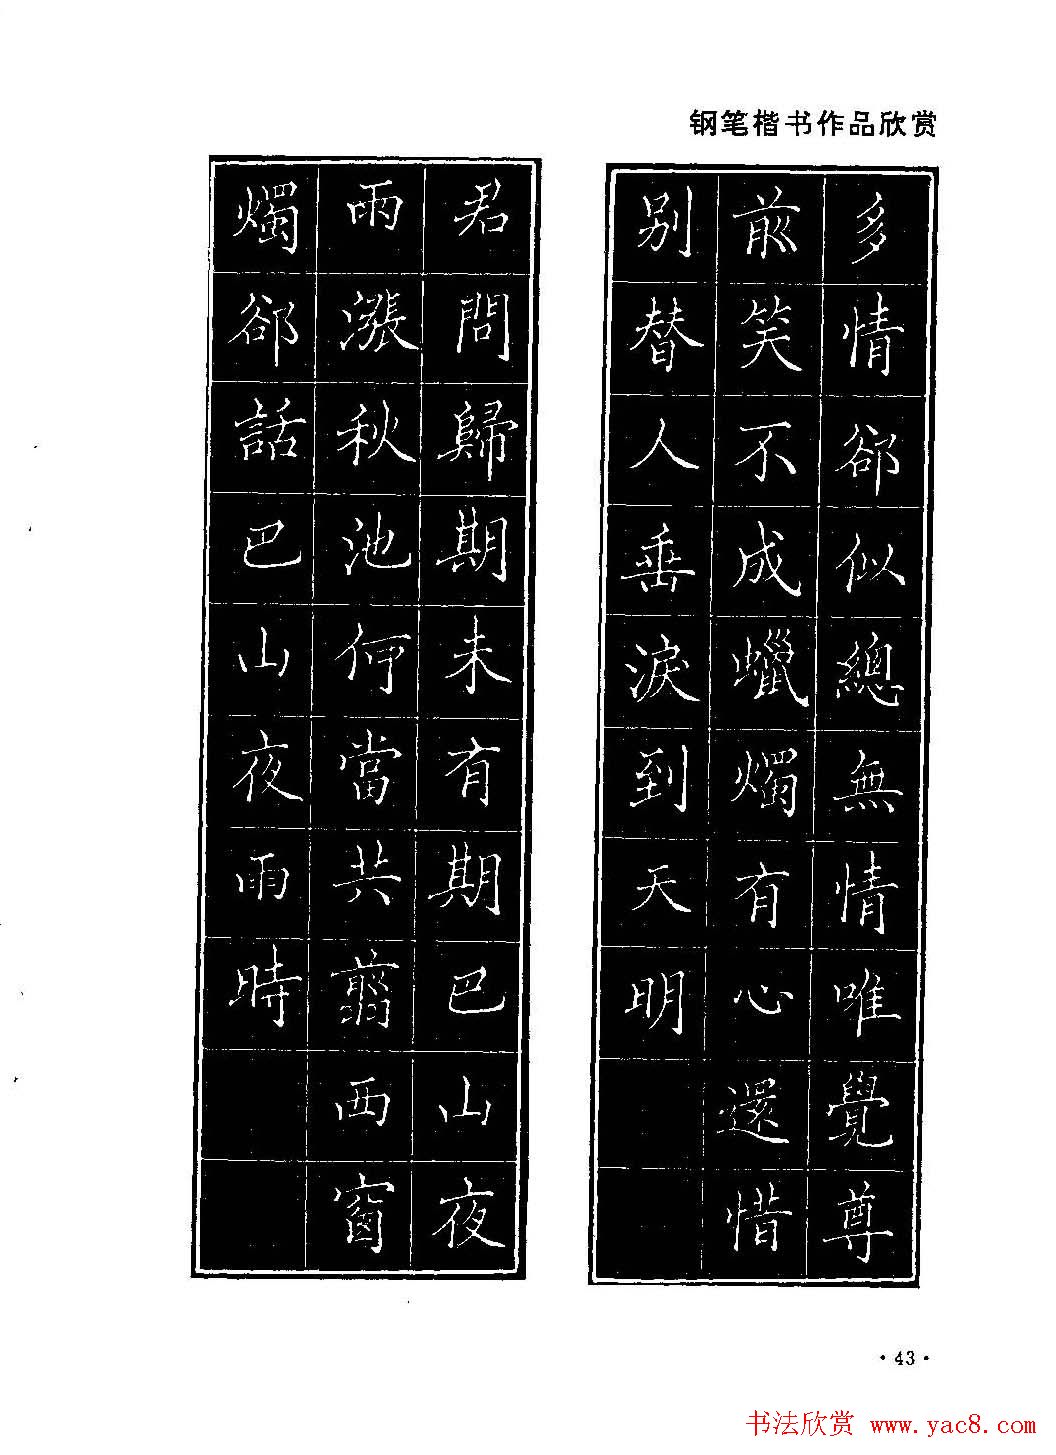 钢笔楷书作品欣赏
多情郤似總無情唯覺尊
前笑不成蠟燭有心還惜
别替人垂淚到天明
君問歸期未有期巴山夜
雨漲秋池何當共翦西窗
燭郤話巴山夜雨時
·43·
书法欣赏 www.yac8.com